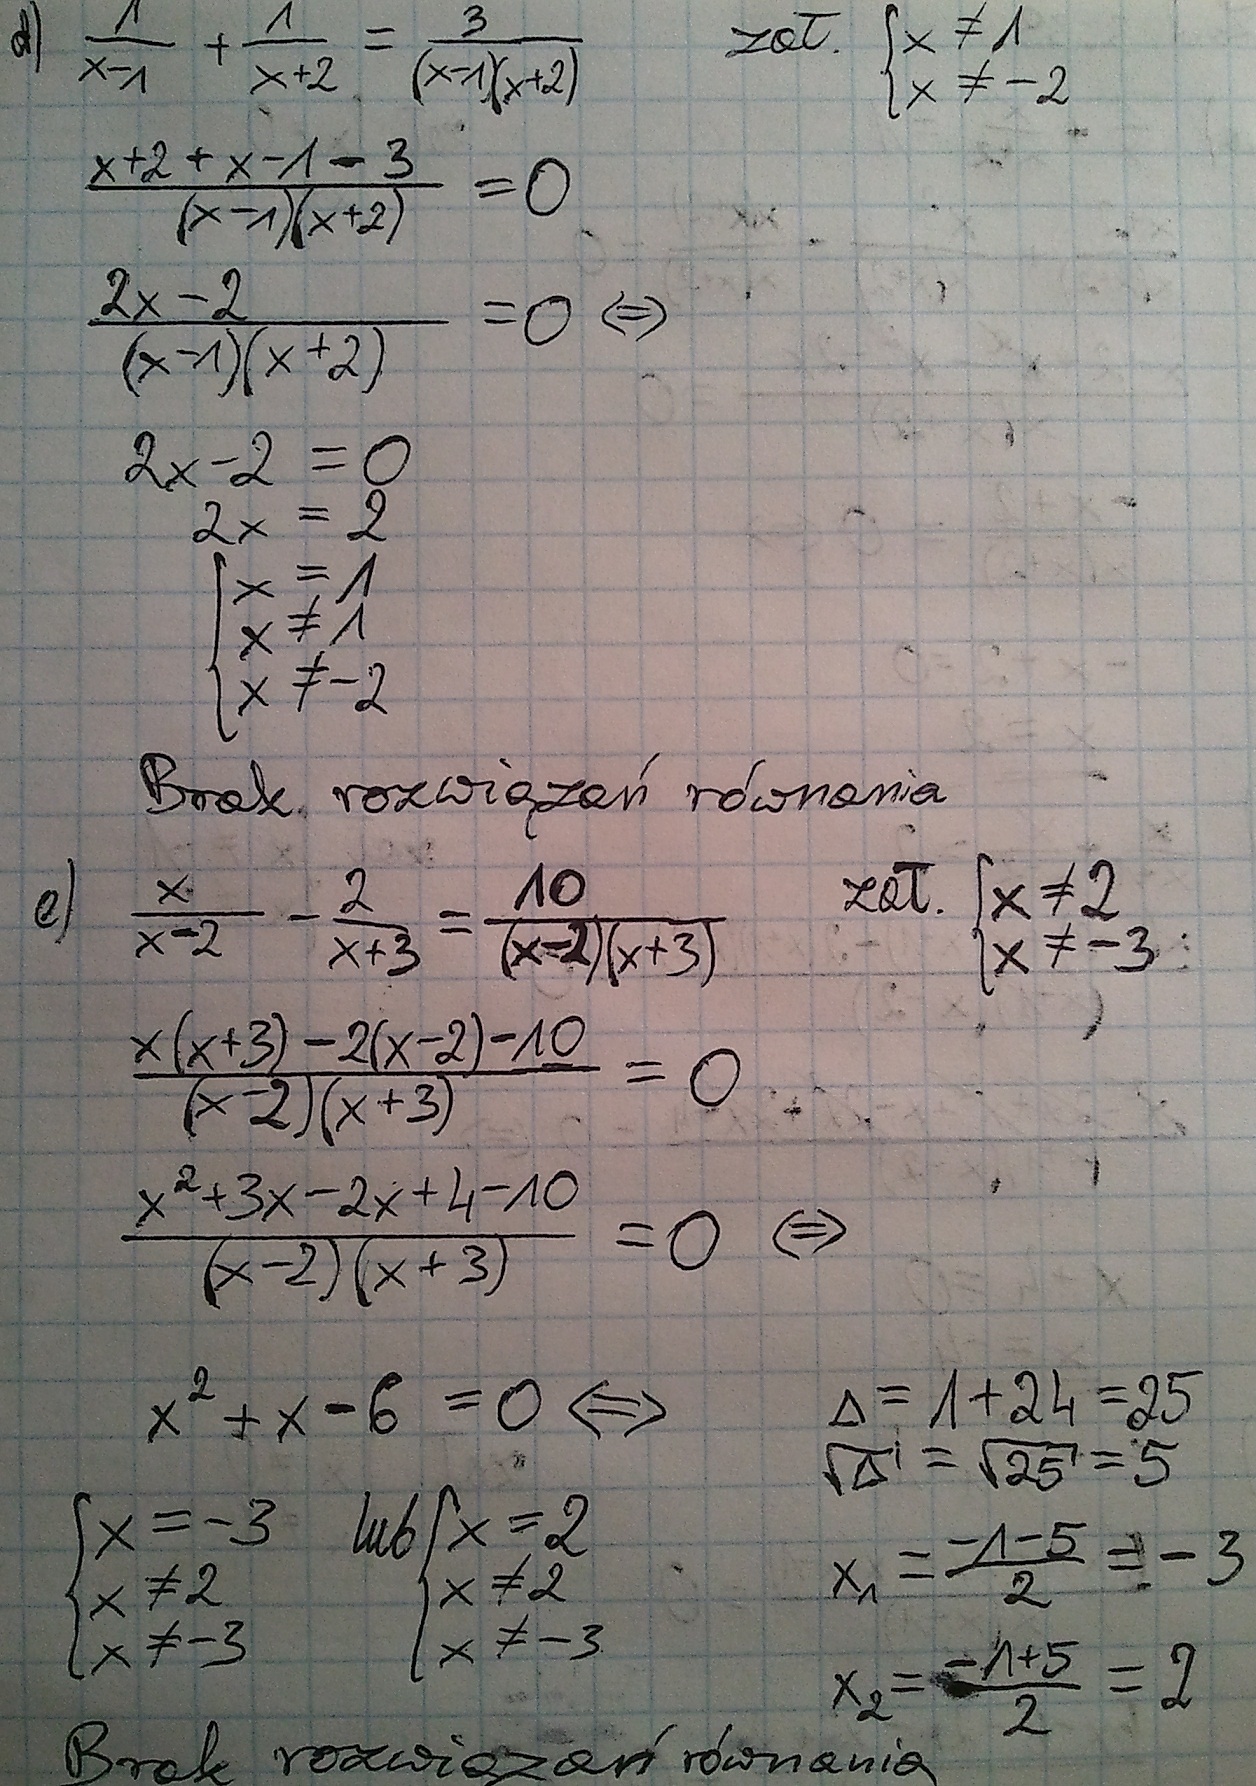 d) 1/(x-1) + 1/(x+2) = 3/((x-1)(x+2)) zał. { x ≠ 1
x ≠ -2
(x+2+x-1-3)/((x-1)(x+2)) = 0
(2x-2)/((x-1)(x+2)) = 0 ⇔
2x-2 = 0
2x = 2
{ x = 1
x ≠ 1
x ≠ -2
Brak rozwiązań równania
e) x/(x-2) - 2/(x+3) = 10/((x-2)(x+3)) zał. { x ≠ 2
x ≠ -3
(x(x+3)-2(x-2)-10)/((x-2)(x+3)) = 0
(x²+3x-2x+4-10)/((x-2)(x+3)) = 0 ⇔
x²+x-6 = 0 ⇔ Δ = 1+24 = 25
√Δ = √25 = 5
{ x = -3 lub { x = 2
x ≠ 2 x ≠ 2
x ≠ -3 x ≠ -3
x₁ = (-1-5)/2 = -3
x₂ = (-1+5)/2 = 2
Brak rozwiązań równania